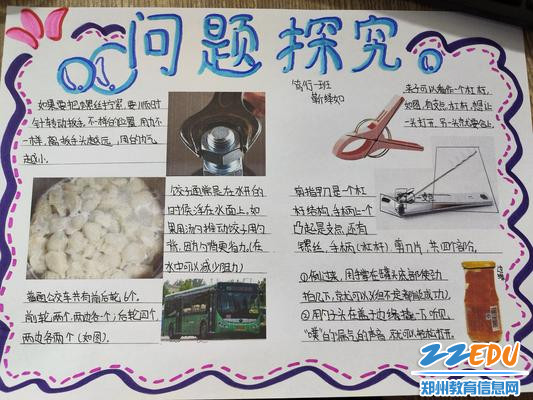 问题探究
笃行一班
如果要把螺丝拧紧，要顺时
针转动扳手，不一样的位置，用力不
一样，离扳手头越远，用的力气
越小。
夹子可以看作一个杠杆，
如图，有支点、杠杆，想让
一头打开，另一头就要合上
饺子通常是在水开的
时候浮在水面上，如
果用汤勺推动饺子用勺
背，因为勺背更省力。（在
水中可以减少阻力）
指甲刀是一个杠
杆结构，手柄上一个
凸起是支点，还有
螺丝，手柄（杠杆）剪刀片，共四个部分。
普通公交车共有前后轮，6个。
前轮两个，两边各1个；后轮四个，
两边各两个（如图）。
①倒过来，用手掌在罐头底部使劲
拍几下，就可以（但不是都能成功）
②用勺子头在盖子边缘撬一下，听见
"噗"的漏气的声音，就可以轻松打开。
22EDU
郑州教育信息网